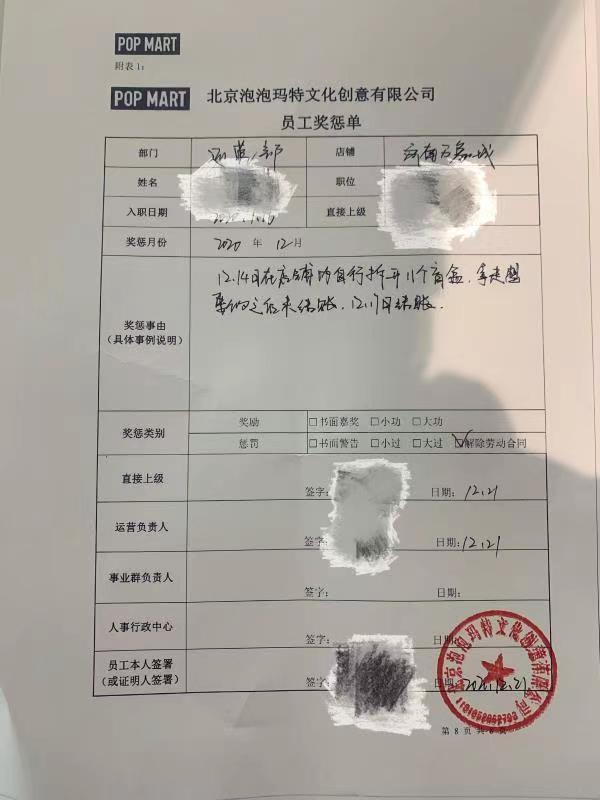 POP MART
附表1:
POP MART 北京泡泡玛特文化创意有限公司
员工奖惩单
部门 店铺 济南万象城
姓名 职位
入职日期 直接上级
奖惩月份 2020 年 12 月
12.14日在店铺内自行拆开11个盲盒,拿走盟
之后未结账,12.17日结账.
奖惩事由
(具体事例说明)
奖惩类别 奖励 □书面嘉奖 □小功 □大功
惩罚 □书面警告 □小过 □大过 ☑解除劳动合同
直接上级 签字: 日期: 12.21
运营负责人 签字: 日期: 12.21
事业群负责人 签字: 日期:
人事行政中心 签字:
员工本人签署
(或证明人签署) 签字: 日期: 2020.12.21
北京泡泡玛特文化创意有限公司
第 8 页 共 8 页